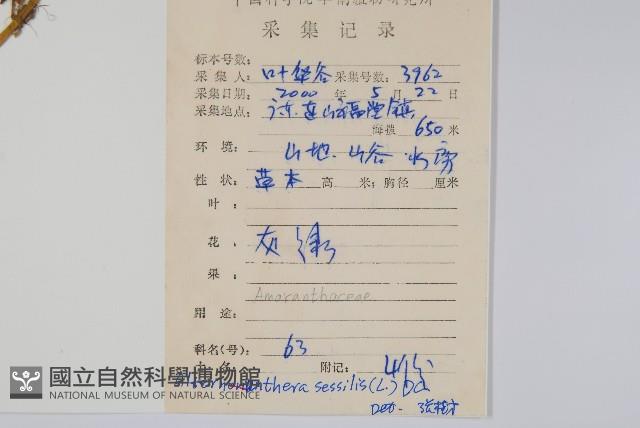 中国科学院华南植物研究所
采集记录
标本号数:
采集人: 叶华谷 采集号数: 3962
采集日期: 2000 年 5 月 22 日
采集地点: 广东连山福堂镇
海拔 650 米
环境: 山地.山谷.水旁
性状: 草本 高 米; 胸径 厘米
叶:
花: 灰绿
果:
Amaranthaceae
用途:
科名(号): 63
附记: 4份
Alternanthera sessilis (L.) DC
Det. 张
國立自然科學博物館
NATIONAL MUSEUM OF NATURAL SCIENCE